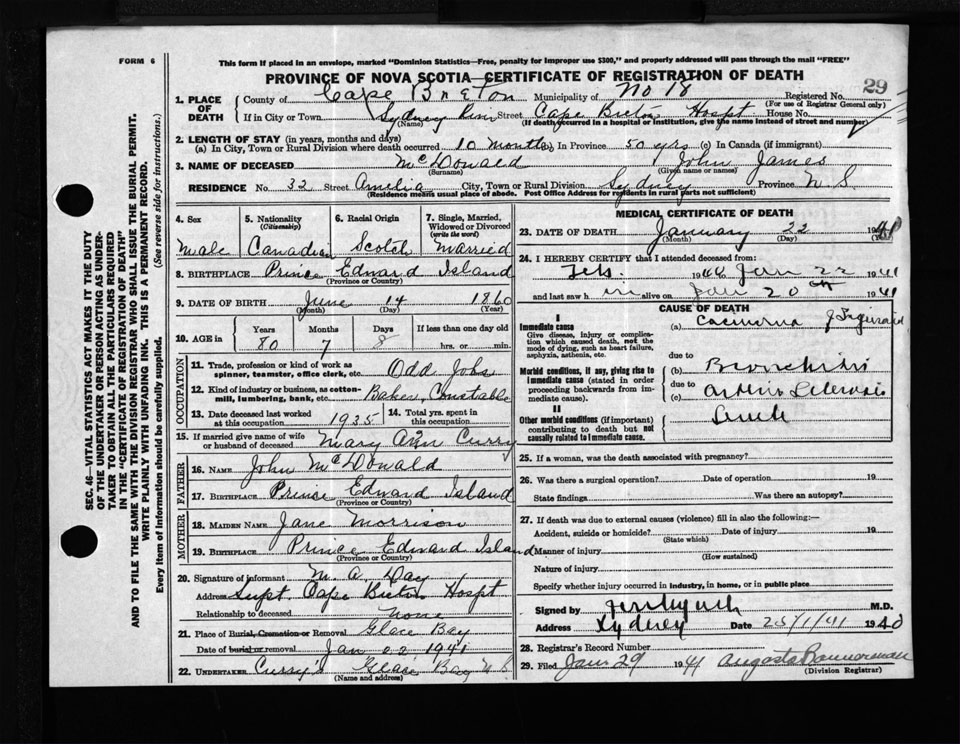 FORM 6
This form if placed in an envelope, marked "Dominion Statistics—Free, penalty for improper use $300," and properly addressed will pass through the mail "FREE"
PROVINCE OF NOVA SCOTIA—CERTIFICATE OF REGISTRATION OF DEATH
29
1. PLACE OF DEATH
County of Cape Breton Municipality of No 18 Registered No.
(For use of Registrar General only)
If in City or Town Sydney Street Cape Breton Hospt House No.
(Name) (If death occurred in a hospital or institution, give the name instead of street and number)
2. LENGTH OF STAY (in years, months and days)
(a) In City, Town or Rural Division where death occurred 10 months (b) In Province 50 yrs (c) In Canada (if immigrant)
3. NAME OF DECEASED McDonald John James
(Surname) (Given name or names)
RESIDENCE No. 32 Street Amelia City, Town or Rural Division Sydney Province N S
(Residence means usual place of abode. Post Office Address for residents in rural parts not sufficient)
SEC. 46—VITAL STATISTICS ACT MAKES IT THE DUTY
OF THE UNDERTAKER OR PERSON ACTING AS UNDER-
TAKER TO OBTAIN ALL THE PARTICULARS REQUIRED
IN THE "CERTIFICATE OF REGISTRATION OF DEATH"
AND TO FILE THE SAME WITH THE DIVISION REGISTRAR WHO SHALL ISSUE THE BURIAL PERMIT.
WRITE PLAINLY WITH UNFADING INK. THIS IS A PERMANENT RECORD.
Every item of Information should be carefully supplied. (See reverse side for instructions.)
4. Sex
Male
5. Nationality
(Citizenship)
Canadian
6. Racial Origin
Scotch
7. Single, Married,
Widowed or Divorced
(write the word)
Married
8. BIRTHPLACE Prince Edward Island
(Province or Country)
9. DATE OF BIRTH June 14 1860
(Month) (Day) (Year)
10. AGE in
Years Months Days If less than one day old
80 7 8 hrs. or min.
OCCUPATION
11. Trade, profession or kind of work as
spinner, teamster, office clerk, etc. Odd Jobs
12. Kind of industry or business, as cotton-
mill, lumbering, bank, etc. Baker, Constable
13. Date deceased last worked
at this occupation 1935
14. Total yrs. spent in
this occupation
15. If married give name of wife
or husband of deceased Mary Ann Curry
FATHER
16. NAME John McDonald
17. BIRTHPLACE Prince Edward Island
(Province or Country)
MOTHER
18. MAIDEN NAME Jane Morrison
19. BIRTHPLACE Prince Edward Island
(Province or Country)
20. Signature of informant M. A. Day
Address Supt. Cape Breton Hospt
Relationship to deceased None
21. Place of Burial, Cremation or Removal Glace Bay
Date of burial or removal Jan 22 1941
22. UNDERTAKER Curry's Glace Bay N S
(Name and address)
MEDICAL CERTIFICATE OF DEATH
23. DATE OF DEATH January 22 1941
(Month) (Day)
24. I HEREBY CERTIFY that I attended deceased from:
Feb. 1940 to Jan 22 1941
and last saw him alive on Jan 20th 1941
CAUSE OF DEATH
I
Immediate cause
Give disease, injury or complica-
tion which caused death, not the
mode of dying, such as heart failure,
asphyxia, asthenia, etc.
Morbid conditions, if any, giving rise to
immediate cause (stated in order
proceeding backwards from im-
mediate cause).
II
Other morbid conditions (if important)
contributing to death but not
causally related to immediate cause.
(a)
due to
(b) Bronchitis
due to
(c)
25. If a woman, was the death associated with pregnancy?
26. Was there a surgical operation? Date of operation 19
State findings Was there an autopsy?
27. If death was due to external causes (violence) fill in also the following:—
Accident, suicide or homicide? Date of injury 19
(State which)
Manner of injury
(How sustained)
Nature of injury
Specify whether injury occurred in industry, in home, or in public place
Signed by M.D.
Address Sydney Date 25/1/41 1940
28. Registrar's Record Number
29. Filed Jan 29 1941 Augusta Bannerman
(Division Registrar)